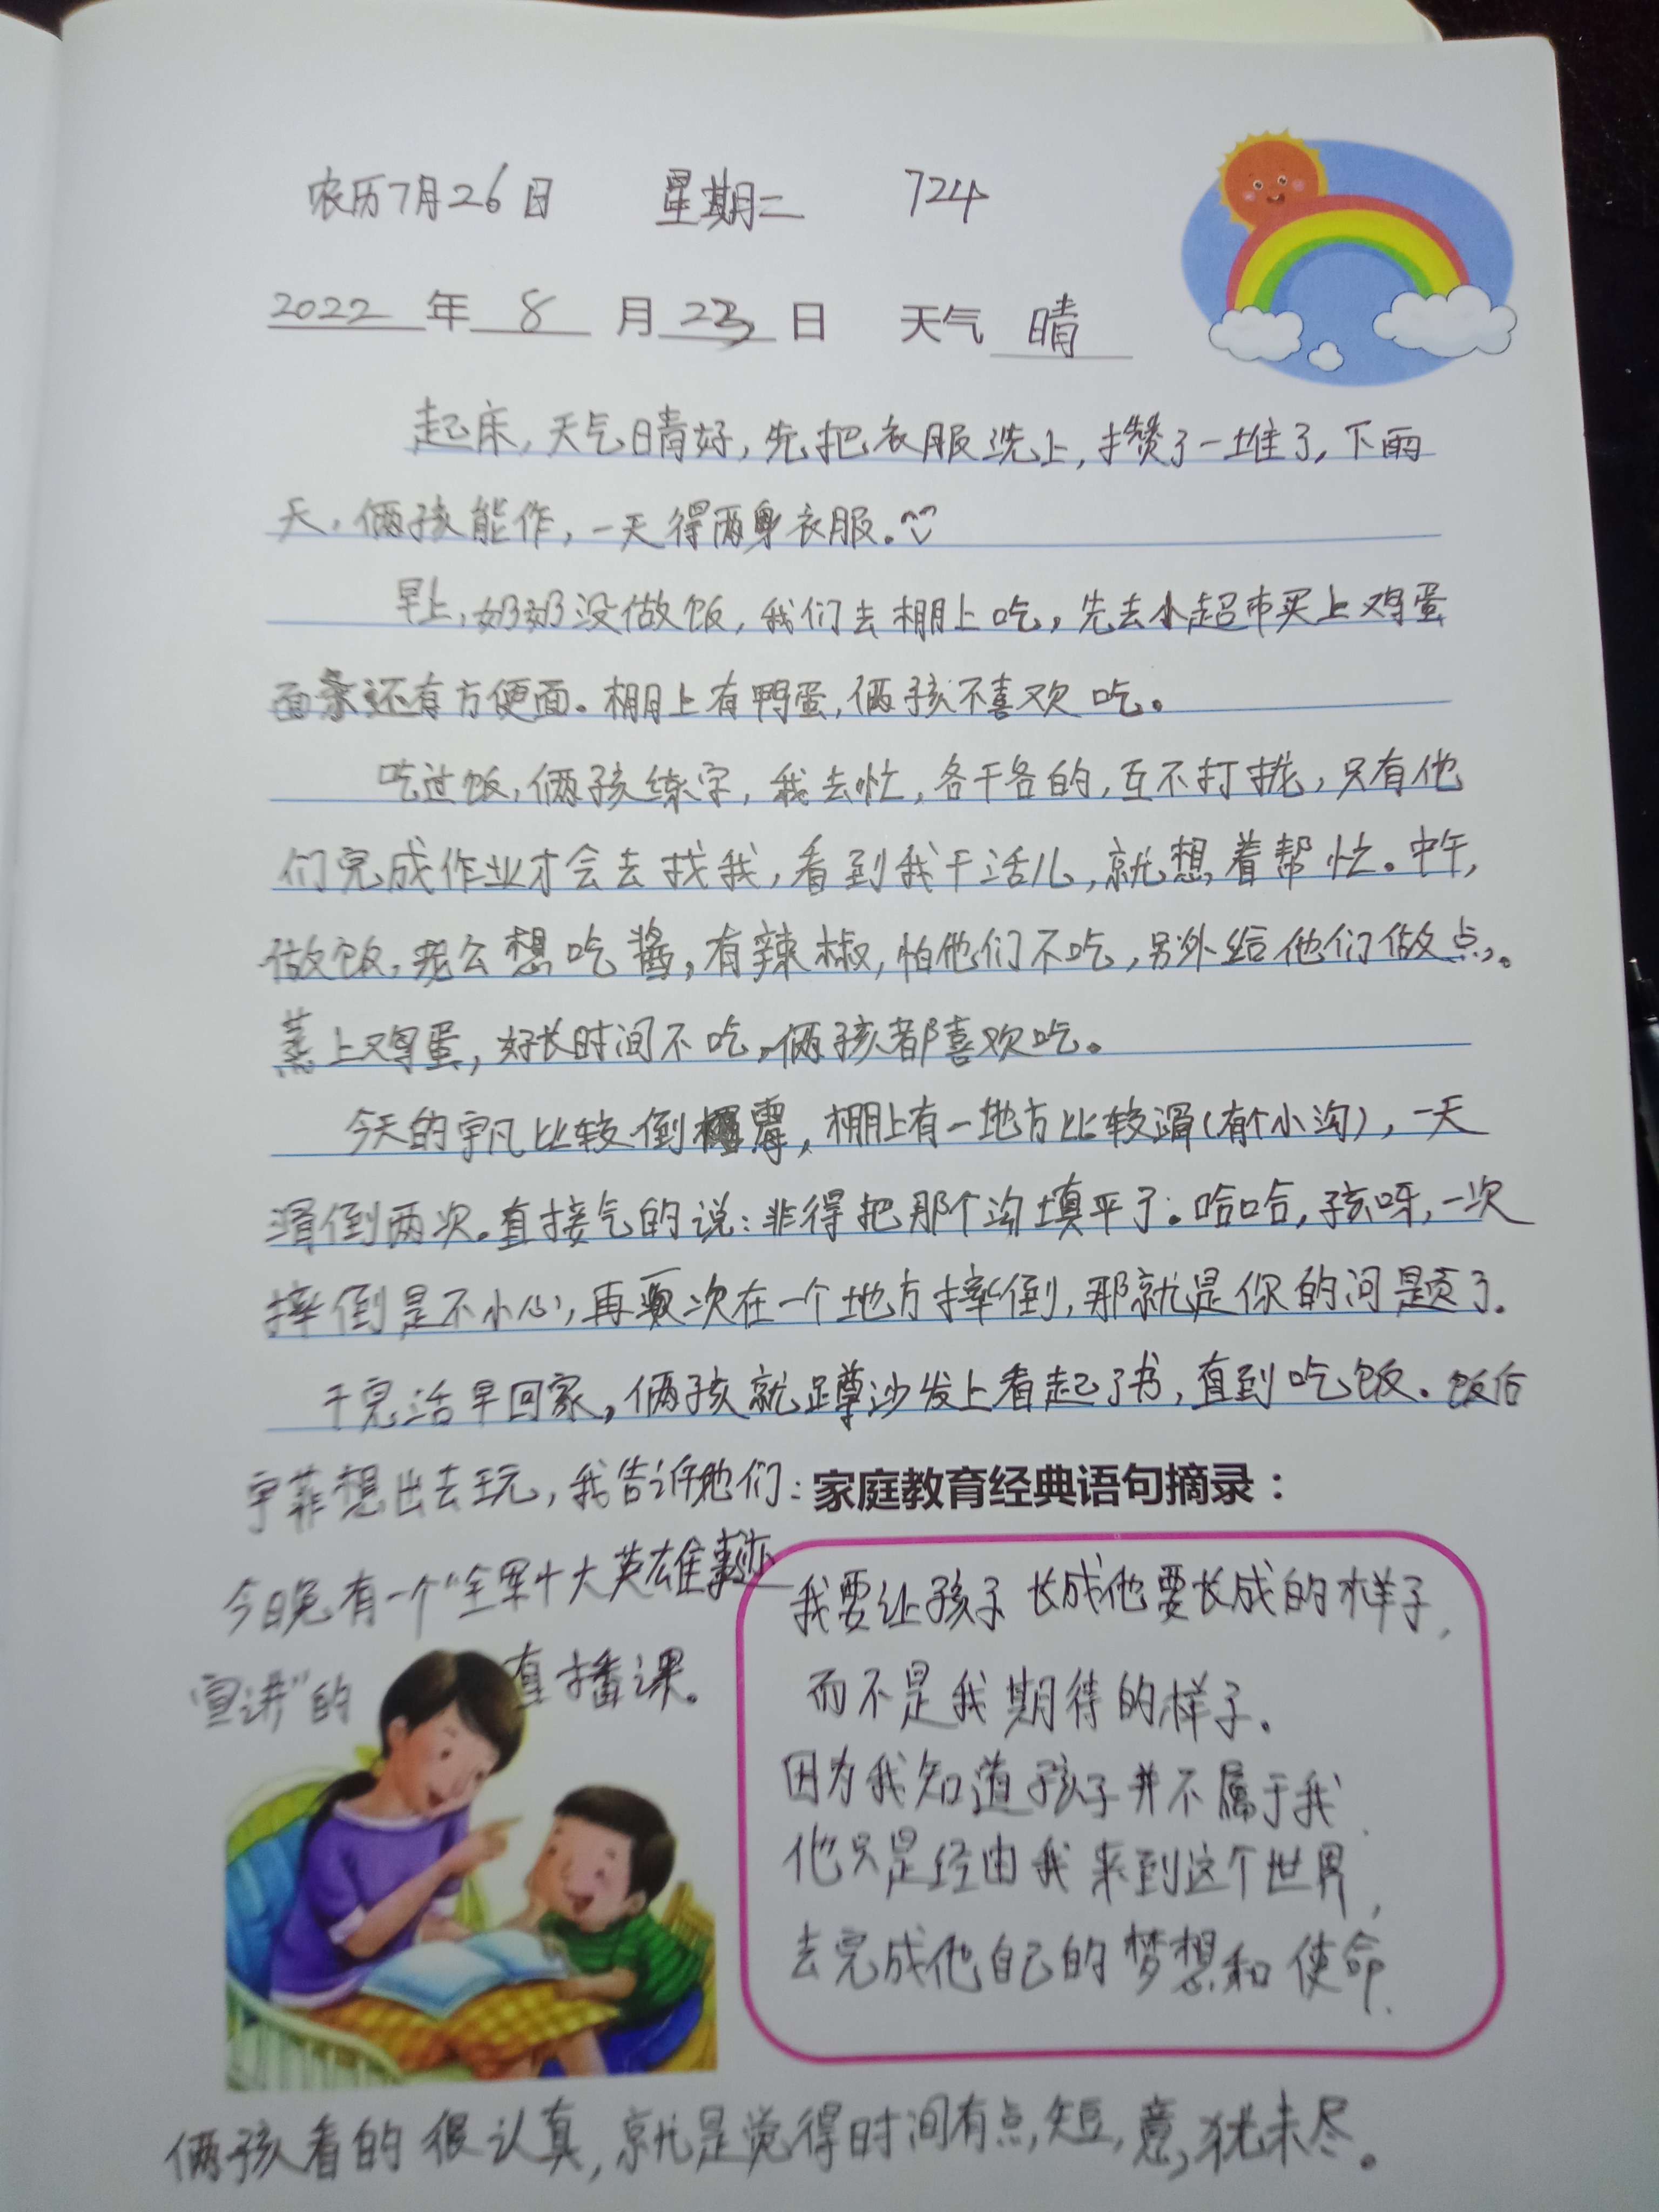 农历7月26日 星期二 724
2022年8月23日 天气晴
起床,天气晴好,先把衣服洗上,攒了一堆了,下雨
天,俩孩能作,一天得两身衣服。
早上,奶奶没做饭,我们去棚上吃,先去小超市买上鸡蛋
面条还有方便面。棚上有鸭蛋,俩孩不喜欢吃。
吃过饭,俩孩练字,我去忙,各干各的,互不打扰,只有他
们完成作业才会去找我,看到我干活儿,就想着帮忙。中午,
做饭,老公想吃酱,有辣椒,怕他们不吃,另外给他们做点。
蒸上鸡蛋,好长时间不吃,俩孩都喜欢吃。
今天的宇凡比较倒霉,棚上有一地方比较滑(有个小沟),一天
滑倒两次。直接气的说:非得把那个沟填平了。哈哈,孩呀,一次
摔倒是不小心,再一次在一个地方摔倒,那就是你的问题了。
干完活早回家,俩孩就蹲沙发上看起了书,直到吃饭。饭后
宇菲想出去玩,我告诉他们:
今日晚有一个“全军十大英雄事迹
宣讲”的直播课。
家庭教育经典语句摘录:
我要让孩子长成他要长成的样子,
而不是我期待的样子。
因为我知道孩子并不属于我.
他只是经由我来到这个世界,
去完成他自己的梦想和使命.
俩孩看的很认真,就是觉得时间有点短,意犹未尽。